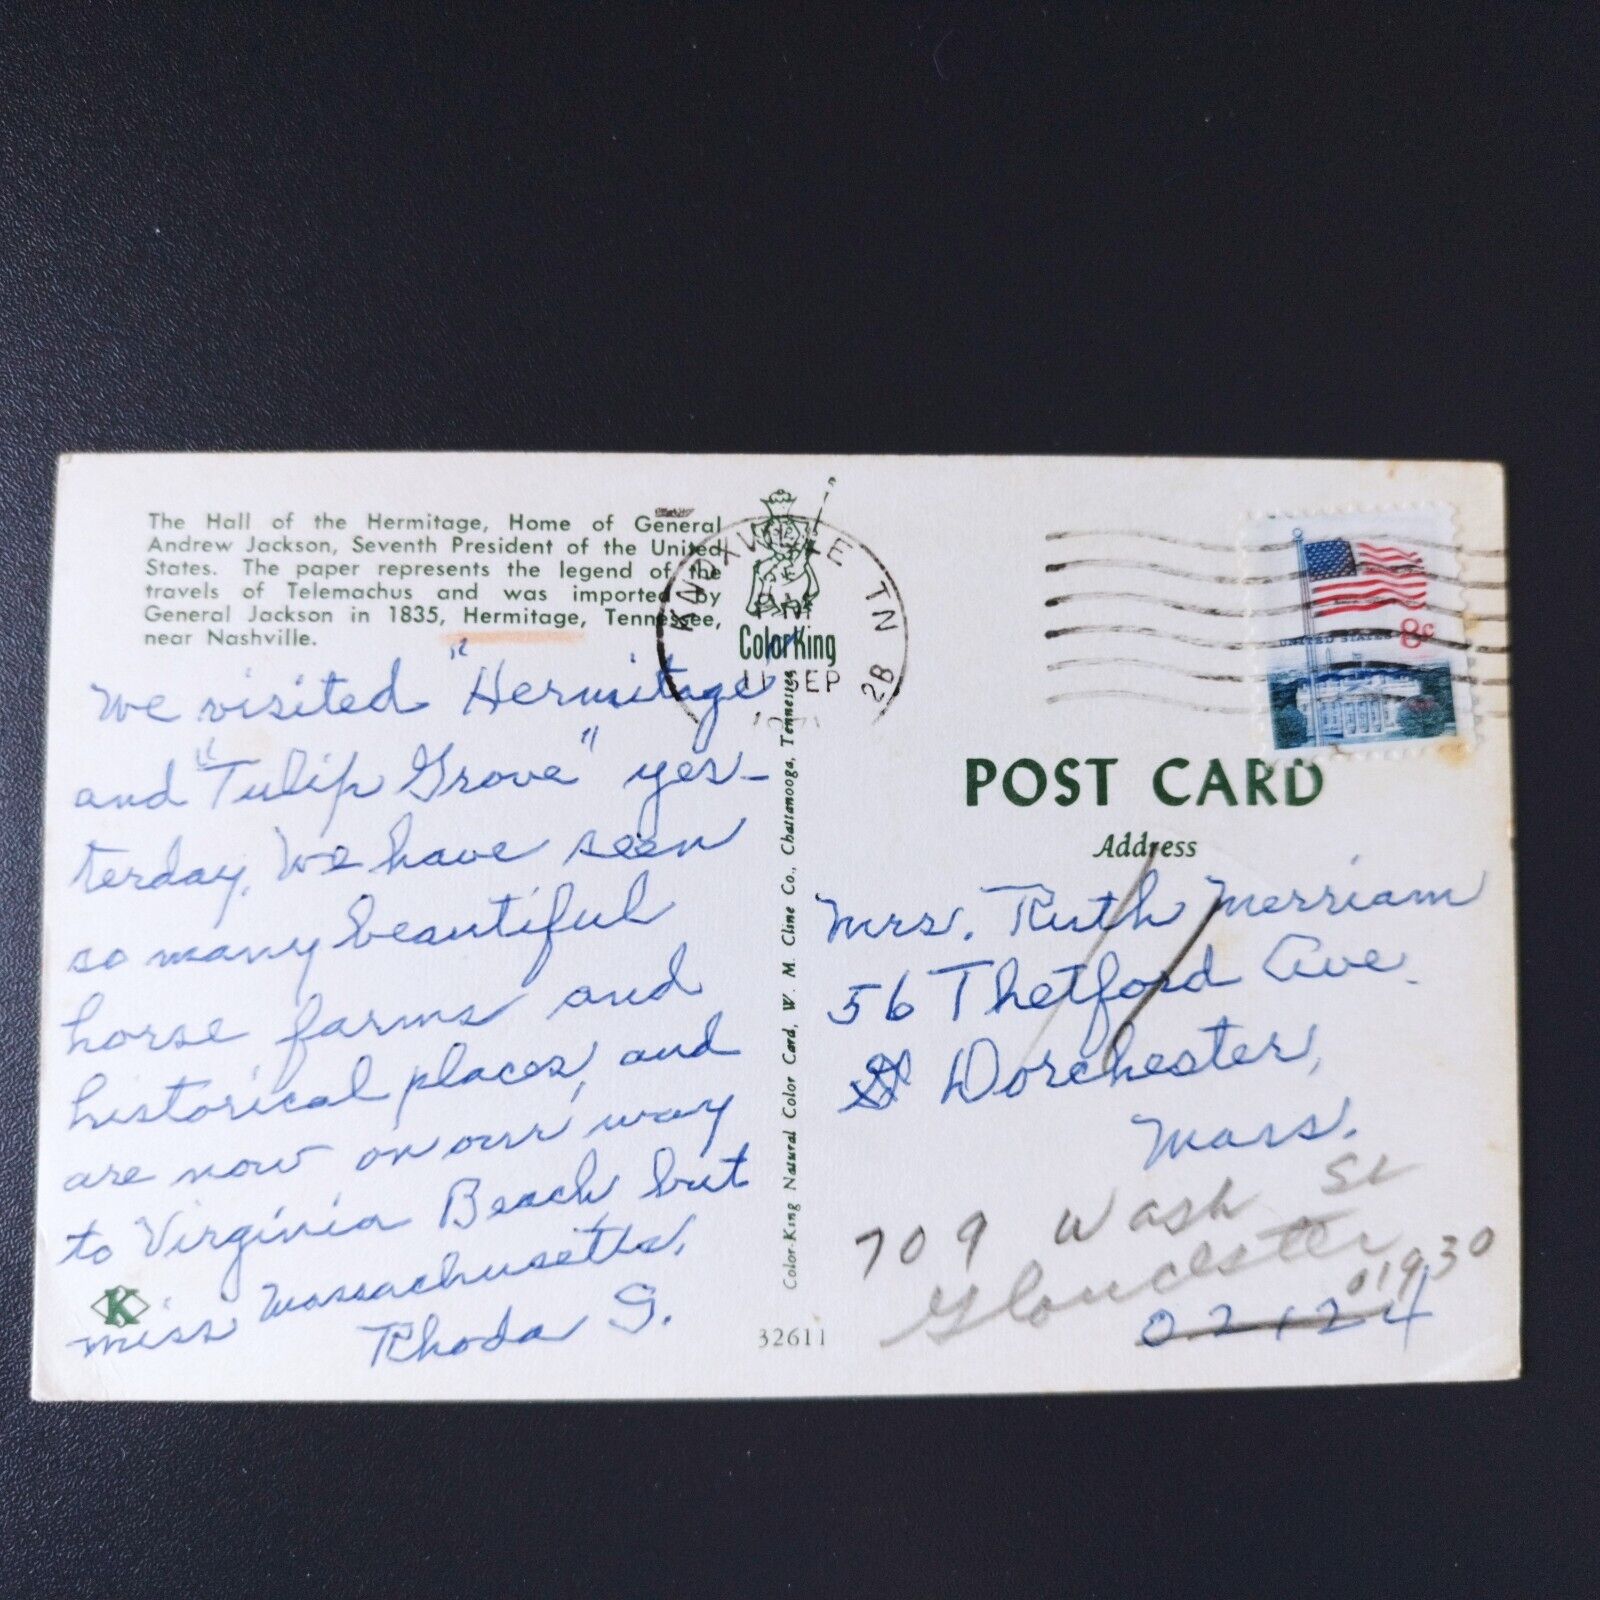 The Hall of the Hermitage, Home of General
Andrew Jackson, Seventh President of the United
States. The paper represents the legend of the
travels of Telemachus and was imported by
General Jackson in 1835, Hermitage, Tennessee,
near Nashville.
We visited "Hermitage"
and "Tulip Grove" yes-
terday. We have seen
so many beautiful
horse farms and
historical places, and
are now on our way
to Virginia Beach, but
miss Massachusetts.
Rhoda S.
K
KNOXVILLE TN
PM
11 SEP
ColorKing
Color-King Natural Color Card, W. M. Cline Co., Chattanooga, Tennessee
32611
UNITED STATES 8c
POST CARD
Address
Mrs. Ruth Merriam
56 Thetford Ave.
Dorchester,
Mass.
709 Wash St
Gloucester
01930
02124